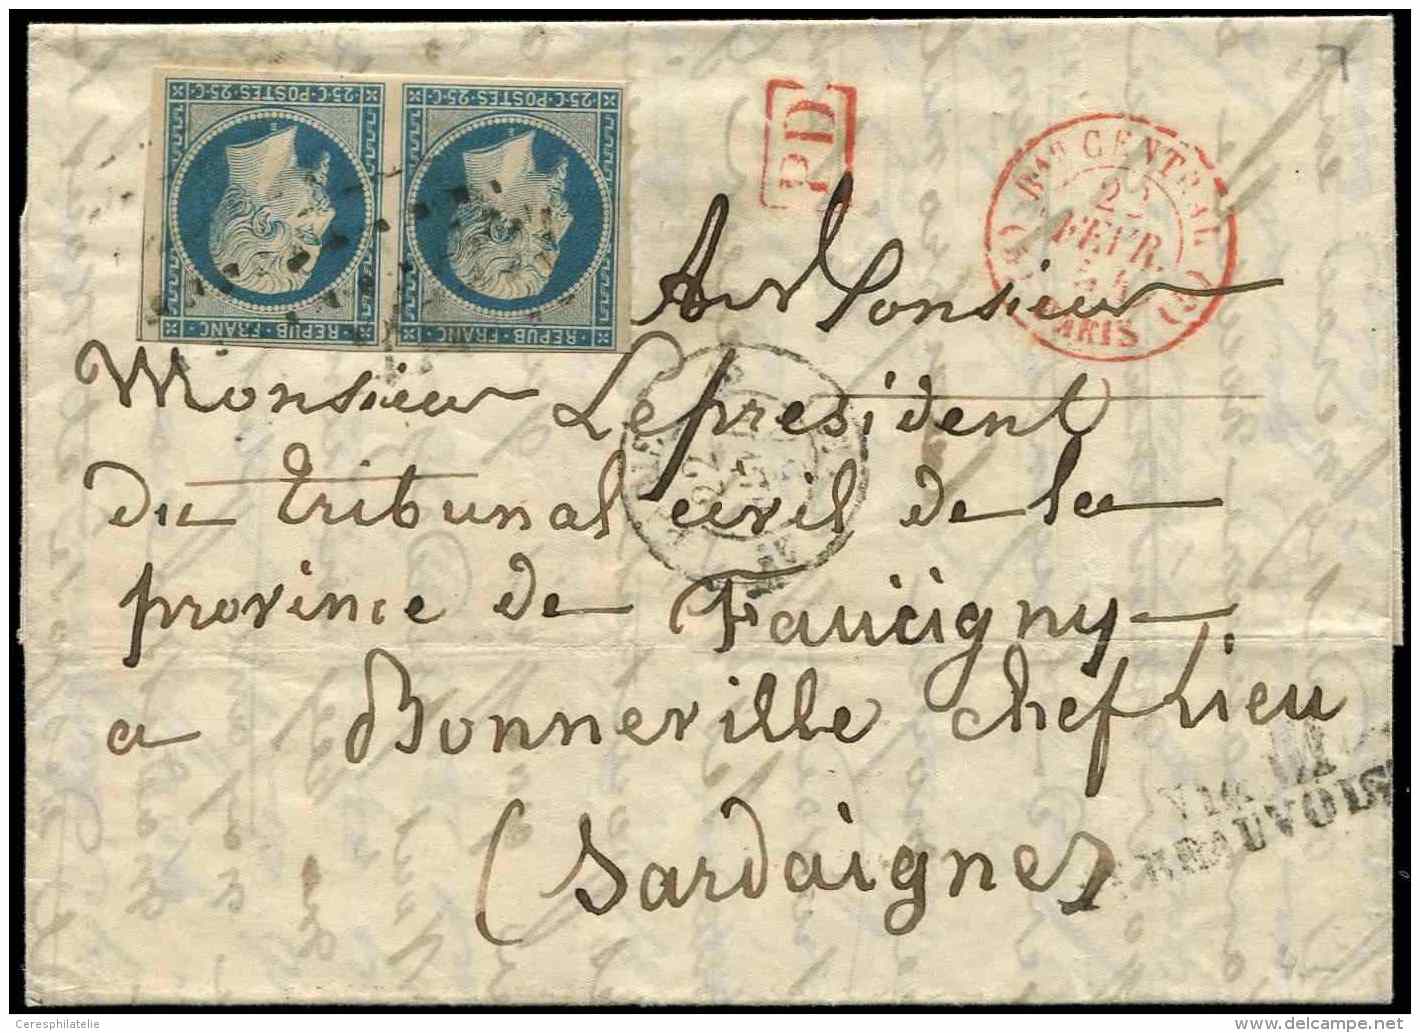 25·C·POSTES·25·C·
REPUB·FRANC·
25·C·POSTES·25·C·
REPUB·FRANC·
PD
Bau CENTRAL
FEVR.
PARIS
A Monsieur
Monsieur Le president
du tribunal civil de la
province de Faucigny
a Bonneville chef lieu
(Sardaigne)
BEAUVOIS
22
Ceresphilatelie
delcampe.net